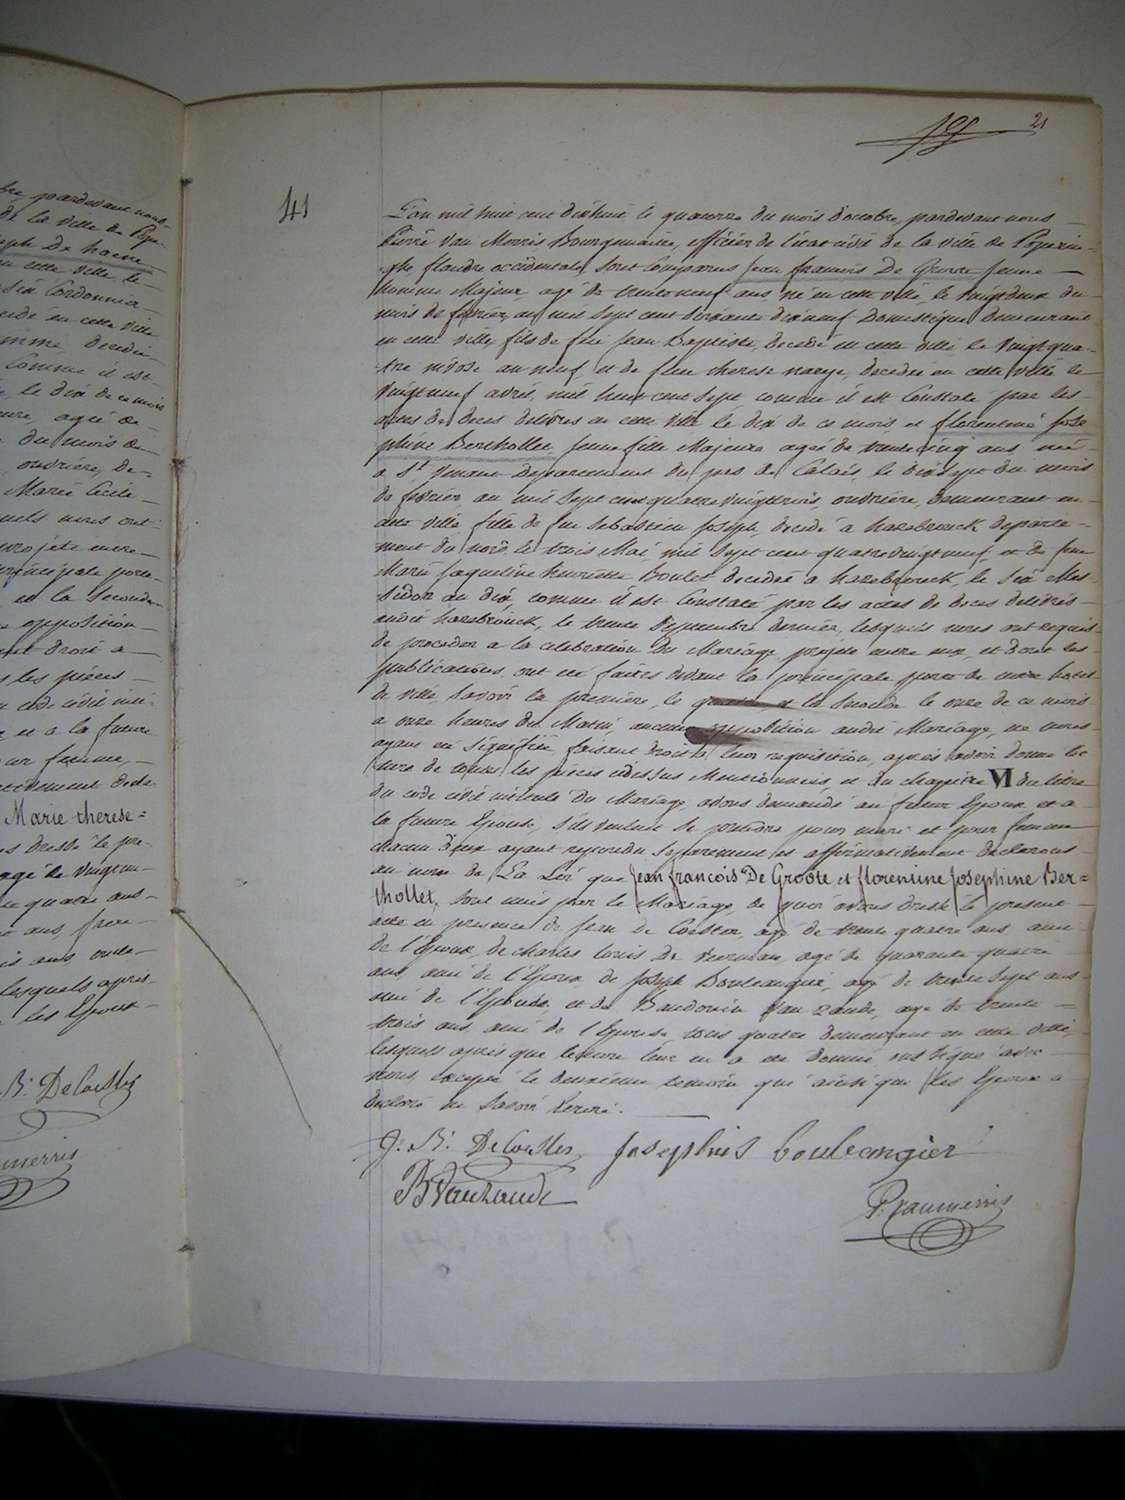 bre, pardevant nous
de la ville de Pope-
eph De haene
en cette ville le
Six Cordonnier
cede en cette ville
decede
Comme il est
le dix de ce mois
agée de
du mois de
ouvrière, De-
Marie Cecile
quels nous ont
projeté entre
principale porte
et la Seconde
opposition
droit a
les pièces
code civil inti-
et a la future
pour femme,
Marie therese=
dressé le pre-
agé de vingt
quatre ans
ans
lesquels après
les Epoux
J. B.t DeCoster
21
41
L'an mil huit cent dixhuit, le quatorze du mois d'octobre, pardevant nous
Pierre Van Merris Bourguemaitre, officier de l'état civil de la ville de Poperin-
ghe flandre occidentale, sont Comparus Jean francois De Groote Jeune
homme Majeur, agé de trenteneuf ans né en cette ville, le vingtdeux du
mois de fevrier an mil sept cent soixante dixneuf Domestique demeurant
en cette ville, fils de feu Jean Baptiste, decedé en cette ville le vingtqua-
tre nivose an neuf et de feue therese decedée en cette ville le
vingtneuf avril, mil huit cent sept comme il est Constaté par les
actes de deces delivrés en cette ville le dix de ce mois et florentine Jose
phine Berthollet Jeune fille Majeure agée de trentecinq ans née
a St. Venant Departement du pas de Calais, le dixsept du mois
de fevrier an mil sept cent quatrevingttrois, ouvrière, demeurant en
cette ville fille de feu Sebastien Joseph, decedé a hazebrouck departe-
ment du nord, le trois Mai, mil sept cent quatrevingtneuf et de feue
Marie Jaqueline henriette Boulet decedée a hazebrouck, le six Mes-
sidor an dix comme il est Constaté par les actes de deces delivrés
audit hazebrouck, le trente septembre dernier, lesquels nous ont requis
de proceder a la celebration du Mariage projeté entre eux, et dont les
publications ont été faites devant la principale porte de notre hotel
de ville, Savoir la première, le quatre et la Seconde le onze de ce mois
a onze heures du Matin, aucune opposition audit Mariage, ne nous
ayant été signifiée, faisant droit a leur requisition, après avoir donné lec
ture de toutes les pièces cidessus Mentionnées, et du chapitre VI du titre
du code civil intitulé du Mariage avons demandé au futur Epoux et a
la future Epouse, s'ils veulent se prendre pour mari et pour femme
chacun d'eux ayant repondu separement et affirmativement declarons
au nom de La Loi que Jean francois De Groote et florentine Josephine Ber=
thollet, sont unis par le Mariage, de quoi avons dressé le present
acte en presence de Jean de Coester, agé de trente quatre ans ami
de l'Epoux, de charles louis De agé de quarante quatre
ans ami de l'Epoux, de Joseph Boulangier, agé de trente sept ans
ami de l'Epouse, et de Baudouin Van Zande, agé de trente
trois ans, ami de l'Epouse tous quatre demeurant en cette ville,
lesquels après que lecture leur en a été donné ont signé avec
nous, excepté le deuxième temoin qui ainsi que les Epoux a
declaré ne savoir ecrire.
J. B.t DeCoster Josephus boulengier
B Vanzande
P. Vanmerris